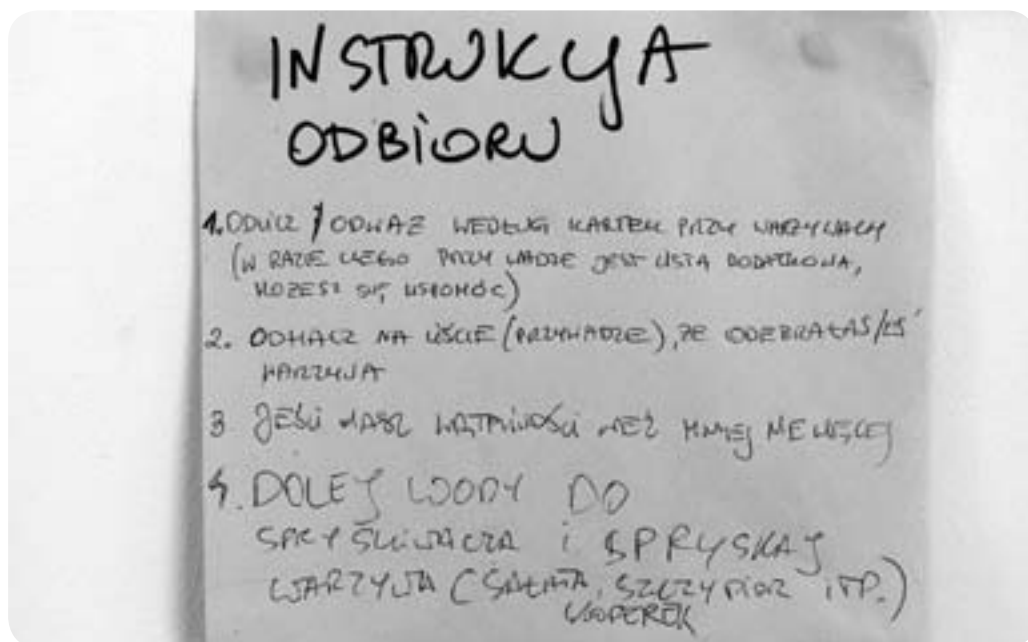 INSTRUKCJA
ODBIORU
1. ODLICZ / ODWAŻ WEDŁUG KARTEK PRZY WARZYWACH
(W RAZIE CZEGO PRZY WADZE JEST LISTA DODATKOWA,
MOŻESZ SIĘ WSPOMÓC)
2. ODHACZ NA LIŚCIE (PRZY WADZE), ŻE ODEBRAŁAŚ/EŚ
WARZYWA
3 JEŚLI MASZ WĄTPLIWOŚCI WEŹ MNIEJ NIE WIĘCEJ
4. DOLEJ WODY DO
SPRYSKIWACZA I SPRYSKAJ
WARZYWA (SAŁATA, SZCZYPIOR ITP.)
KOPEREK